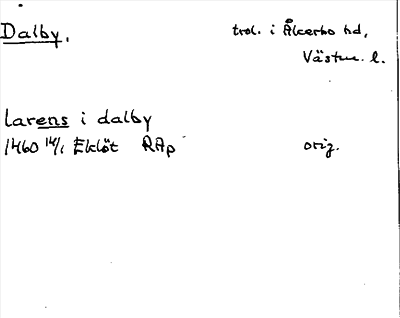 Dalby. trol. i Åkerbo hd,
Västm. l.
larens i dalby
1460 14/1 Eklöt RAp orig.